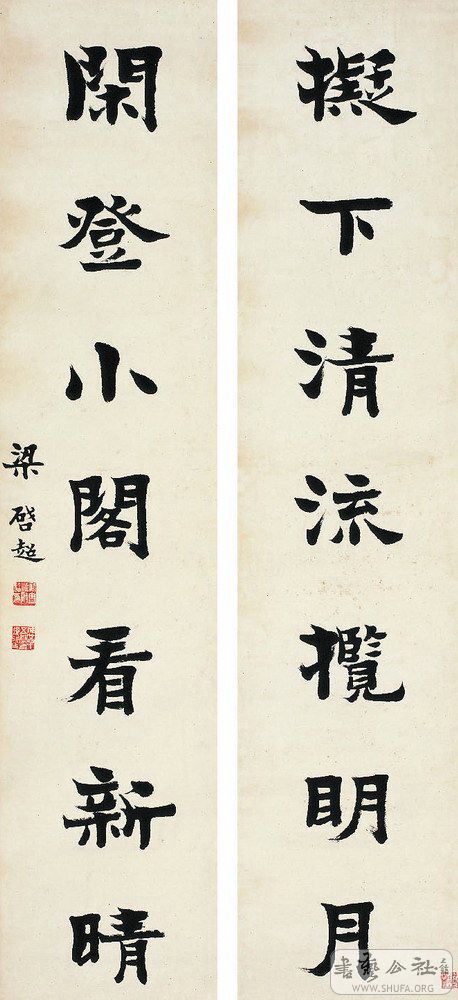 擬下清流攬明月
閑登小閣看新晴
梁啓超
書藝公社
WWW.SHUFA.ORG